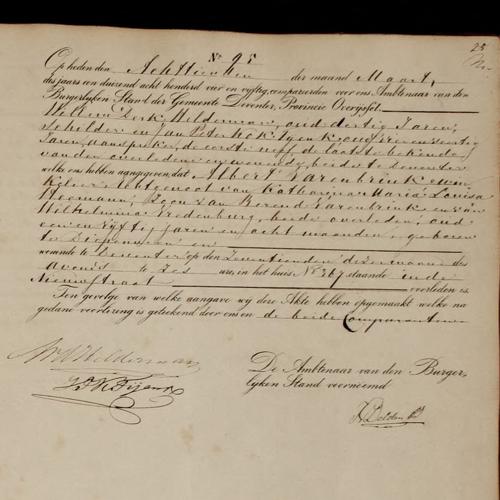 25
N° 95
Op heden den Achttienden der maand Maart,
des jaars een duizend acht honderd vier en vyftig, compareerden voor ons Ambtenaar van den
Burgerlyken Stand der Gemeente Deventer, Provincie Overijssel
Willem Derk Helderman, oud dertig Jaren,
Schilder en Jan Peter
Jaren, Aanspreker, de eerste neef de laatste bekende
van den overledene en wonende beide te Deventer
welke ons hebben aangegeven, dat Albert Varenbrink
Echtgenoot van Katharina Maria Louisa
Zoon van Berend Varenbrink en van
Wilhelmina Vredenburg, beide overleden, oud
een en vyftig jaren en acht maanden, geboren
te Diepenveen en
woonde te Deventer op den Zeventienden dezer maand des
avonds te zes ure, in het huis N° 267 staande in de
Nieuwstraat overleden is.
Ten gevolge van welke aangave wy deze Akte hebben opgemaakt welke na
gedane voorlezing is geteekend door ons en de beide Comparanten
W D Helderman
De Ambtenaar van den Burger-
lyken Stand voornoemd